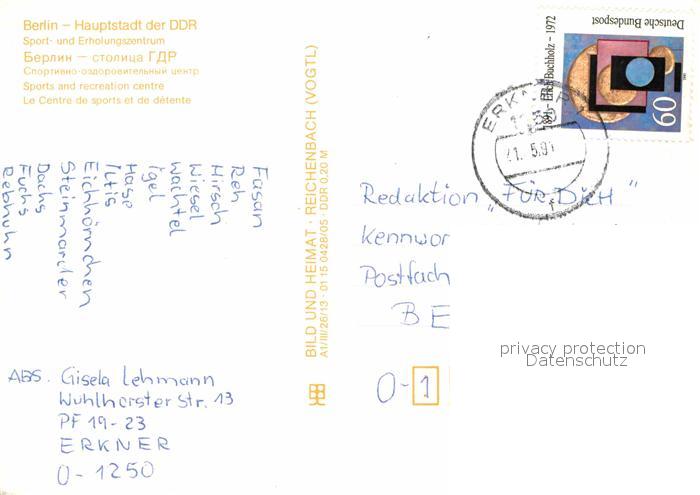 Berlin – Hauptstadt der DDR
Sport- und Erholungszentrum
Берлин – столица ГДР
Спортивно-оздоровительный центр
Sports and recreation centre
Le Centre de sports et de détente
Fasan
Reh
Hirsch
Wiesel
Wachtel
Igel
Hase
Iltis
Eichhörnchen
Steinmarder
Dachs
Fuchs
Rebhuhn
ABS. Gisela Lehmann
Wuhlhorster Str. 13
PF 19-23
ERKNER
O-1250
BILD UND HEIMAT · REICHENBACH (VOGTL)
A1/III/26/13 · 01 15 0428/05 · DDR 0,20 M
Deutsche Bundespost
1891 – Erich Buchholz – 1972
60
ERKNER
Redaktion „FÜR DICH"
Kennwor
Postfach
BE
O-1
privacy protection
Datenschutz